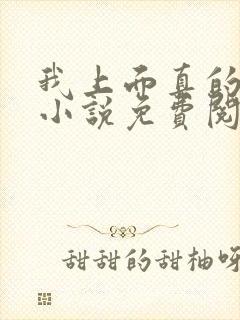 我上面真的
小说免費閱
甜甜的甜柚呀